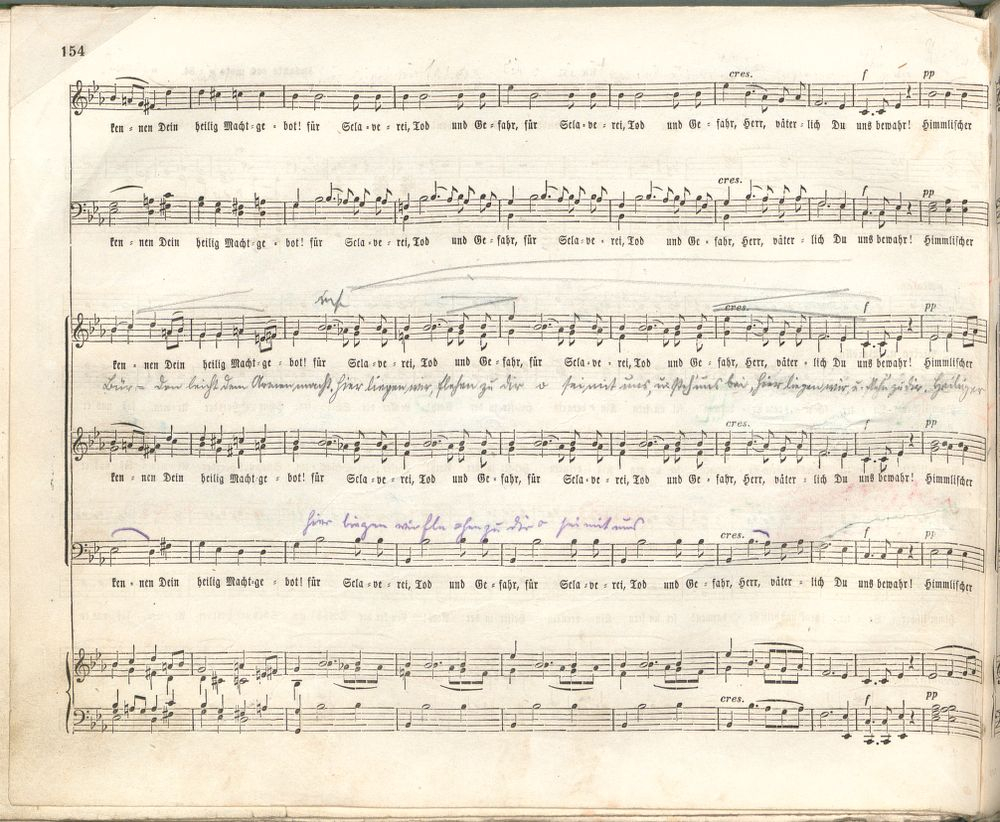 154
cres. f pp
ken - nen Dein heilig Macht-ge - bot! für Scla-ve - rei, Tod und Ge - fahr, für Scla-ve - rei, Tod und Ge - fahr, Herr, väter - lich Du uns bewahr! Himmlischer
cres. f pp
ken - nen Dein heilig Macht-ge - bot! für Scla-ve - rei, Tod und Ge - fahr, für Scla-ve - rei, Tod und Ge - fahr, Herr, väter - lich Du uns bewahr! Himmlischer
cres. f pp
ken - nen Dein heilig Macht-ge - bot! für Scla-ve - rei, Tod und Ge - fahr, für Scla-ve - rei, Tod und Ge - fahr, Herr, väter - lich Du uns bewahr! Himmlischer
hier liegen wir, flehen zu dir o sei mit uns, u. steh uns bei, hier liegen wir, u. flehn zu dir. Heiliger
cres. f pp
ken - nen Dein heilig Macht-ge - bot! für Scla-ve - rei, Tod und Ge - fahr, für Scla-ve - rei, Tod und Ge - fahr, Herr, väter - lich Du uns bewahr! Himmlischer
hier liegen wir fle ehen zu dir o sei mit uns
cres. f pp
ken - nen Dein heilig Macht-ge - bot! für Scla-ve - rei, Tod und Ge - fahr, für Scla-ve - rei, Tod und Ge - fahr, Herr, väter - lich Du uns bewahr! Himmlischer
cres. f pp